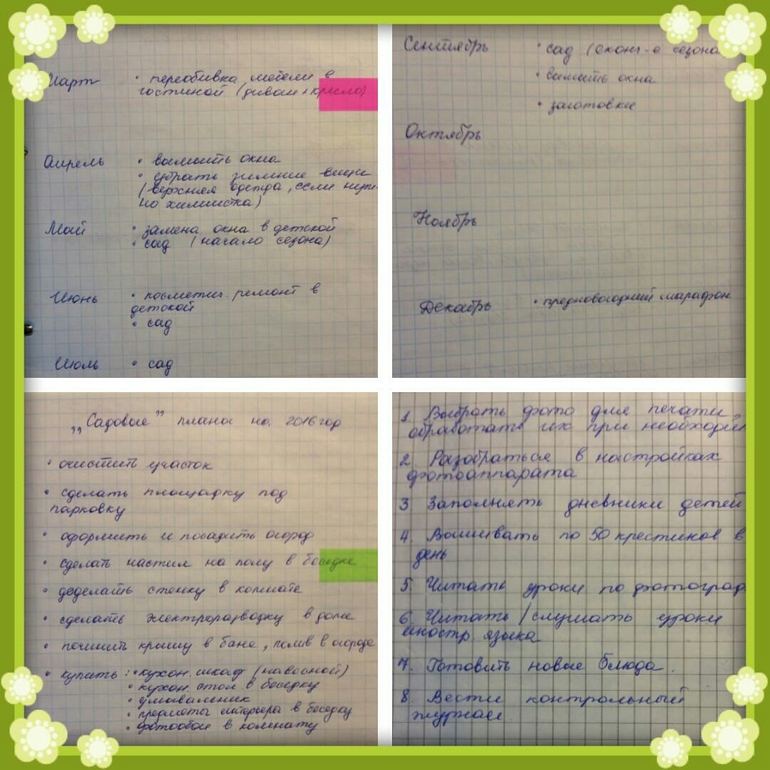 Март
• переобивка мебели в
гостиной (диван + кресло)
Апрель
• вымыть окна
• убрать зимние вещи
(верхняя одежда, если нужно
химчистка)
Май
• замена окна в детской
• сад (начало сезона)
Июнь
• косметич. ремонт в
детской
• сад
Июль
• сад
Сентябрь
• сад (оконч-е сезона
• вымыть окна
• заготовки
Октябрь
Ноябрь
Декабрь
• предновогодний марафон
„Садовые” планы на 2016 год
• очистить участок
• сделать площадку под
парковку
• оформить и посадить огород
• сделать настил на полу в беседке
• доделать стенку в комнате
• сделать электроразводку в доме
• починить крышу в бане, полив в огороде
• купить: • кухон. шкаф (навесной)
• кухон. стол в беседку
• умывальник
• предметы интерьера в беседку
• фотообои в комнату
1. Выбрать фото для печати
обработать их при необходим
2. Разобраться в настройках
фотоаппарата
3 Заполнять дневники детей
4. Вышивать по 50 крестиков в
день
5. Читать уроки по фотограф
6. Читать / слушать уроки
иностр языка
7. Готовить новые блюда.
8. Вести контрольный
журнал